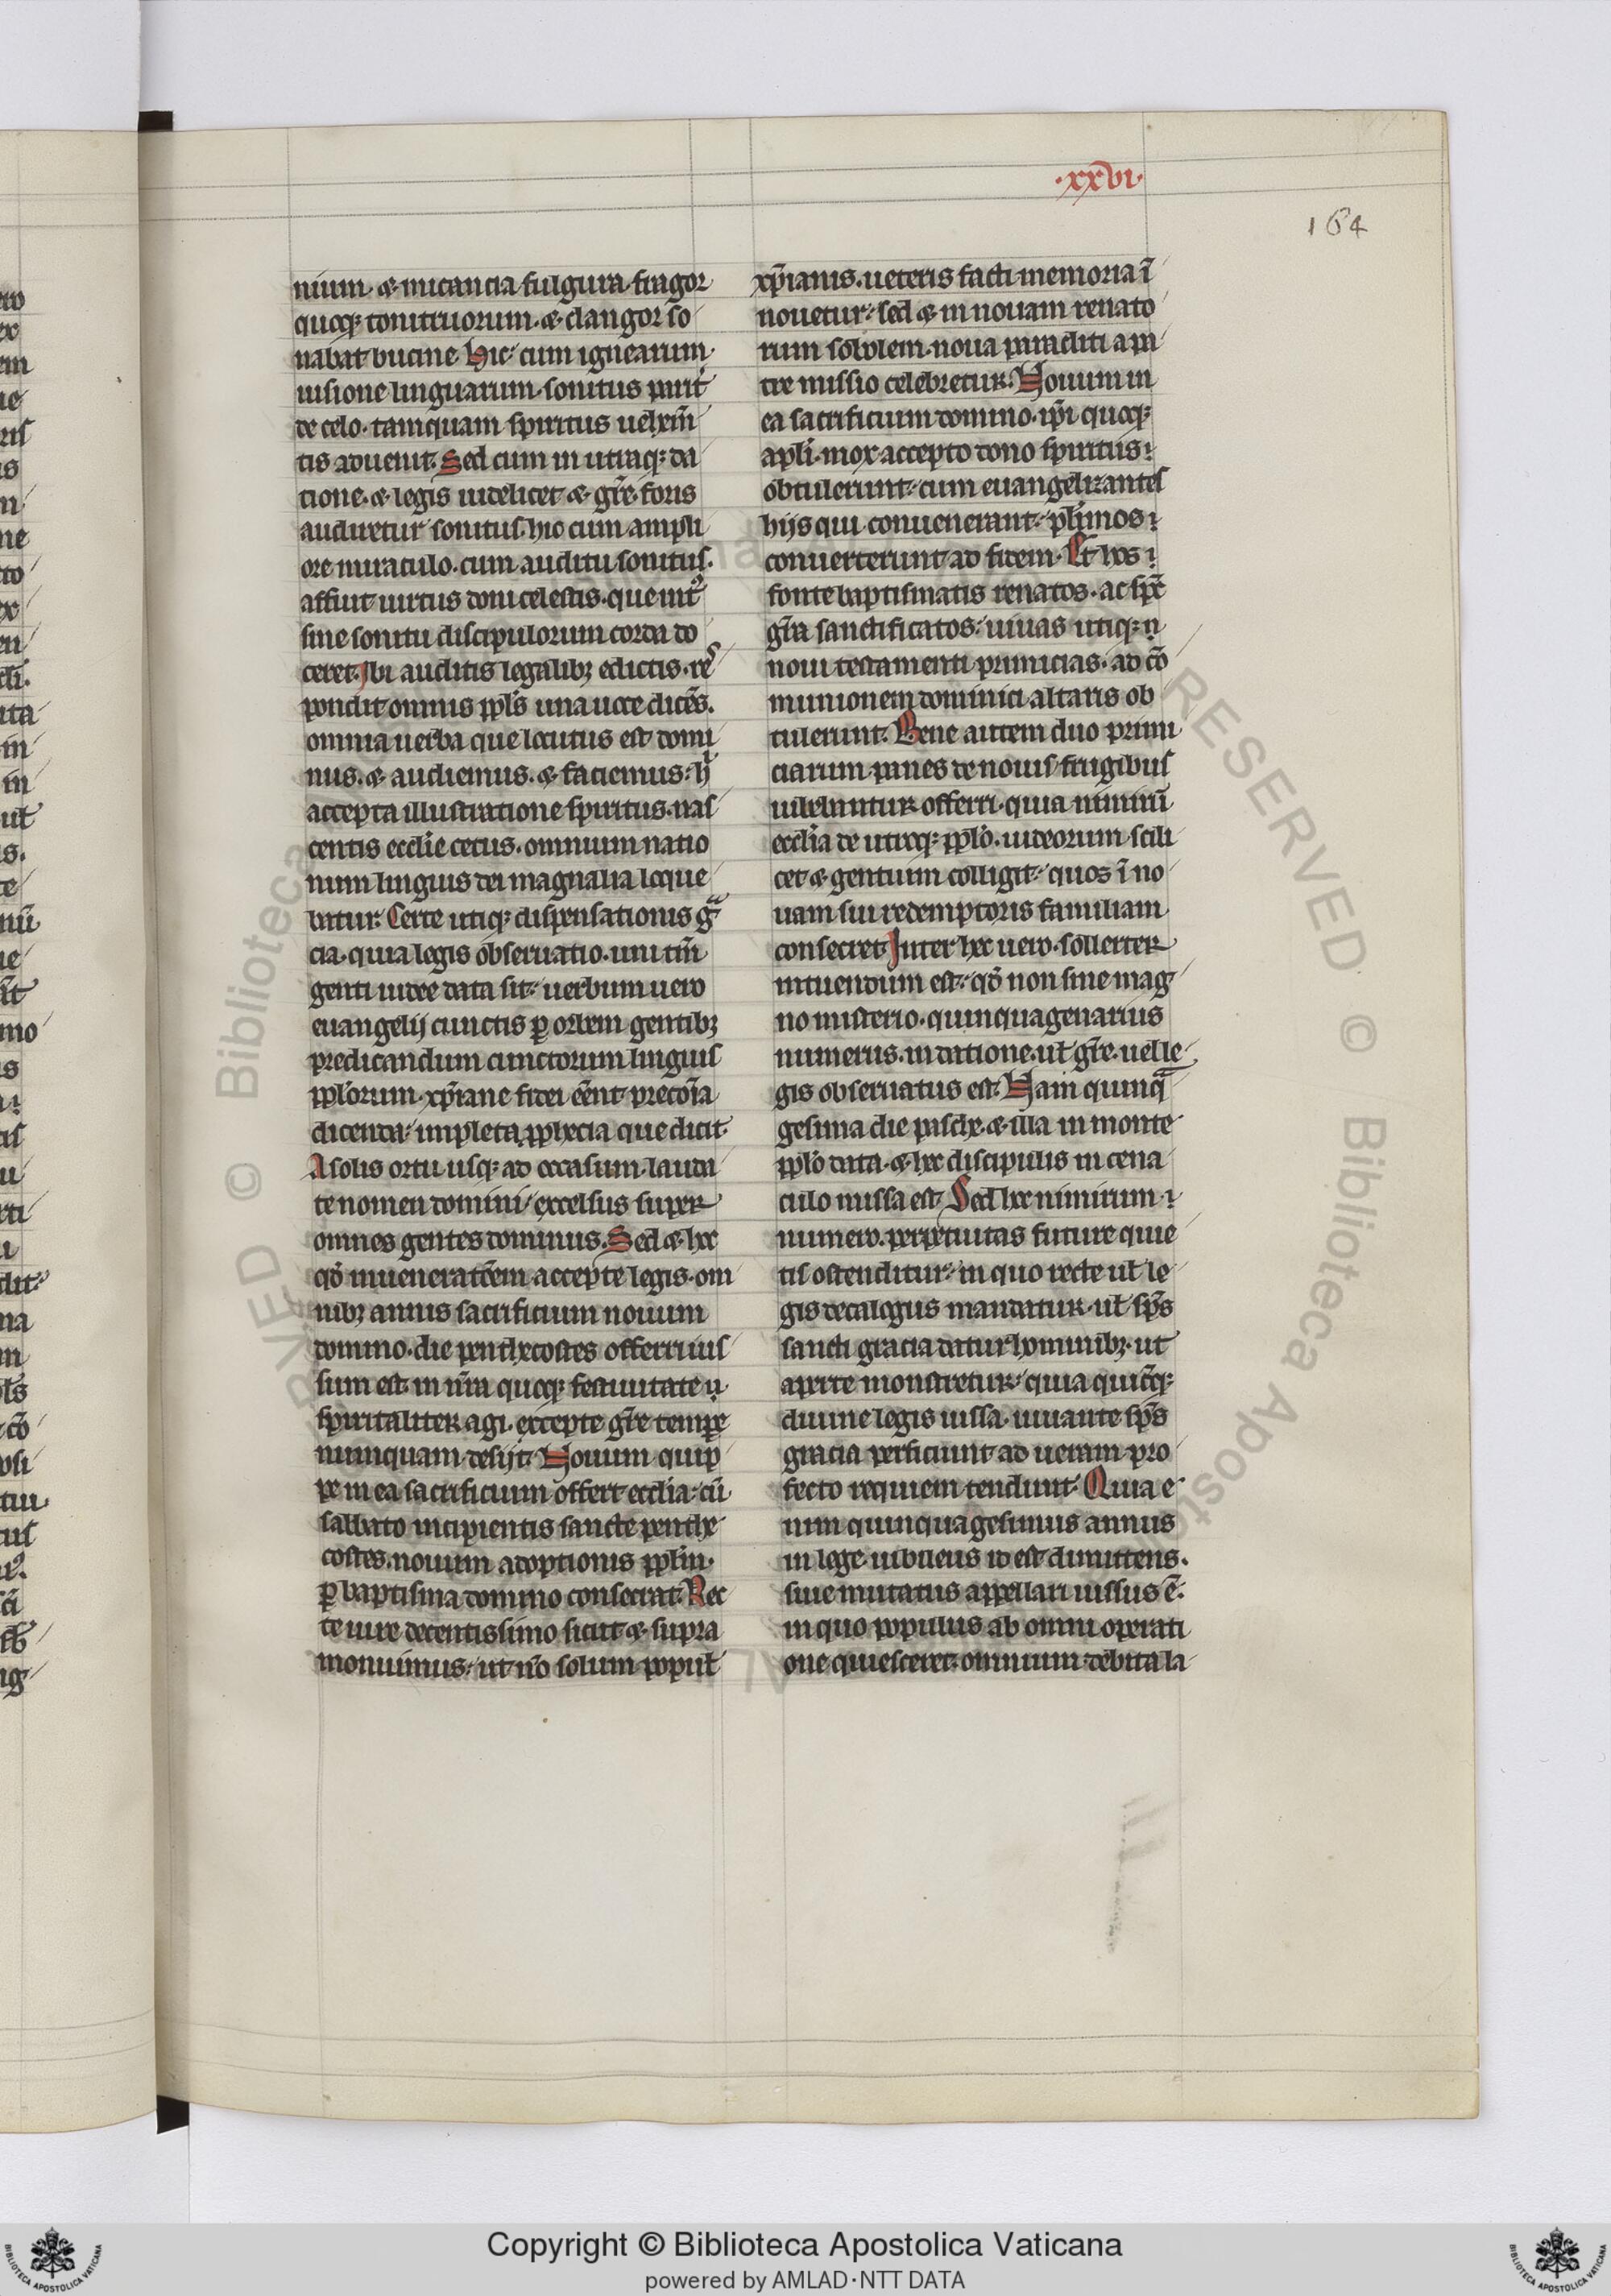 ·xxvi·
164
nium· ⁊ micancia fulgura· fragor
quoq; tonitruorum· ⁊ clangor so
nabat bucine. Hic· cum ignearum·
uisione linguarum· sonitus parit̉
de celo· tamquam spiritus uehem̄
tis aduenit. Sed cum in utraq; da
tione· ⁊ legis uidelicet ⁊ gr̄e· foris
audiretur sonitus· hic cum ampli
ore miraculo· cum auditu sonitus·
affuit uirtus doni celestis· que int̉
sine sonitu discipulorum corda do
ceret. Ibi auditis legalib; edictis· res
pondit omnis ppl̄s una uoce dicēs·
omnia uerba que locutus est domi
nus· ⁊ audiemus· ⁊ faciemus· h̄
accepta illustratione spiritus· nas
centis eccl̄ie cetus· omnium natio
num linguis dei magnalia loque
batur. Certe utiq; dispensationis gͣ
cia· quia legis obseruatio· uni tm̄
genti iudee data sit· uerbum uero
euangelij cunctis ꝑ orbem gentib;
predicandum cunctorum linguis
ppl̄orum· xp̄iane fidei eēnt preconia
dicenda· impleta ꝓphecia que dicit·
A solis ortu usq; ad occasum· lauda
te nomen domini· excelsus super
omnes gentes dominus. Sed ⁊ hoc
qd̄ in ueneratōem accepte legis· om
nib; annis sacrificium nouum
domino· die penthecostes offerri ius
sum est· in nr̄a quoq; festiuitate
spiritaliter agi· excepte gr̄e tempore
numquam desijt. Nouum quip
pe in ea sacrificium offert eccl̄ia· cū
sabbato incipientis sancte penthe
costes· nouum adoptionis ppl̄m·
ꝑ baptisma domino consecrat. Rec
te iure decentissimo sicut ⁊ supra
monuimus· ut nō solum popul̉
xp̄ianis· ueteris facti memoria ī
nouetur· sed ⁊ in nouam renato
rum sobolem· noua paracliti a pa
tre missio celebretur. Nouum in
ea sacrificium domino· ip̄i quoq;
apl̄i· mox accepto dono spiritus
obtulerunt· cum euangelizantes
hijs qui conuenerant· pl̉imos
conuerterunt ad fidem. Et hos
fonte baptismatis renatos· ac sp̄c
gr̄a sanctificatos· uiuas utiq;
noui testamenti primicias· ad cō
munionem dominici altaris ob
tulerunt. Bene autem duo primi
ciarum panes de nouis frugibus
iubebantur offerri· quia nimirū
eccl̄ia de utroq; ppl̄o· iudeorum scili
cet ⁊ gentium colligit· quos ī no
uam sui redemptoris familiam
consecret. Inter hec uero· sollerter
intuendum est· qd̄ non sine mag
no misterio· quinquagenarius
numerus· in datione· ul̄ gr̄e· uel le
gis obseruatus est. Nam quinqͣ
gesima die pasche· ⁊ illa in monte
ppl̄o data· ⁊ hec discipulis in cena
culo missa est. Sed hoc nimirum
numero· perpetuitas future quie
tis ostenditur· in quo recte ul̄ le
gis decalogus mandatur· ul̄ sp̄s
sancti gracia datur hominib;· ut
aperte monstretur· quia quicūq;
diuine legis iussa· iuuante sp̄s
gracia perficiunt ad ueram pro
fecto requiem tendunt. Quia e
nim quinquagesimus annus
in lege iubileus id est dimittens·
siue mutatus appellari iussus ē·
in quo populus ab omni operati
one quiesceret· omnium debita la
Copyright © Biblioteca Apostolica Vaticana
powered by AMLAD·NTT DATA